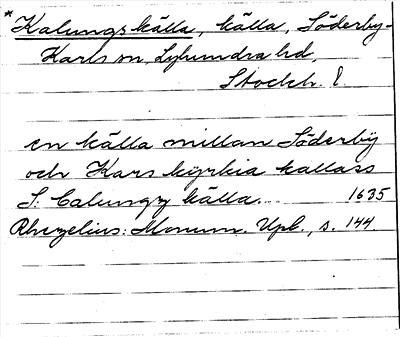 *Kalungskälla, källa, Söderby-
Karls sn, Lyhundra hd,
Stockh. l.
en källa millan Söderby
och Kars kyrkia kallass
S. Calungz källa... 1635
Rhezelius: Monum. Upl., s. 144